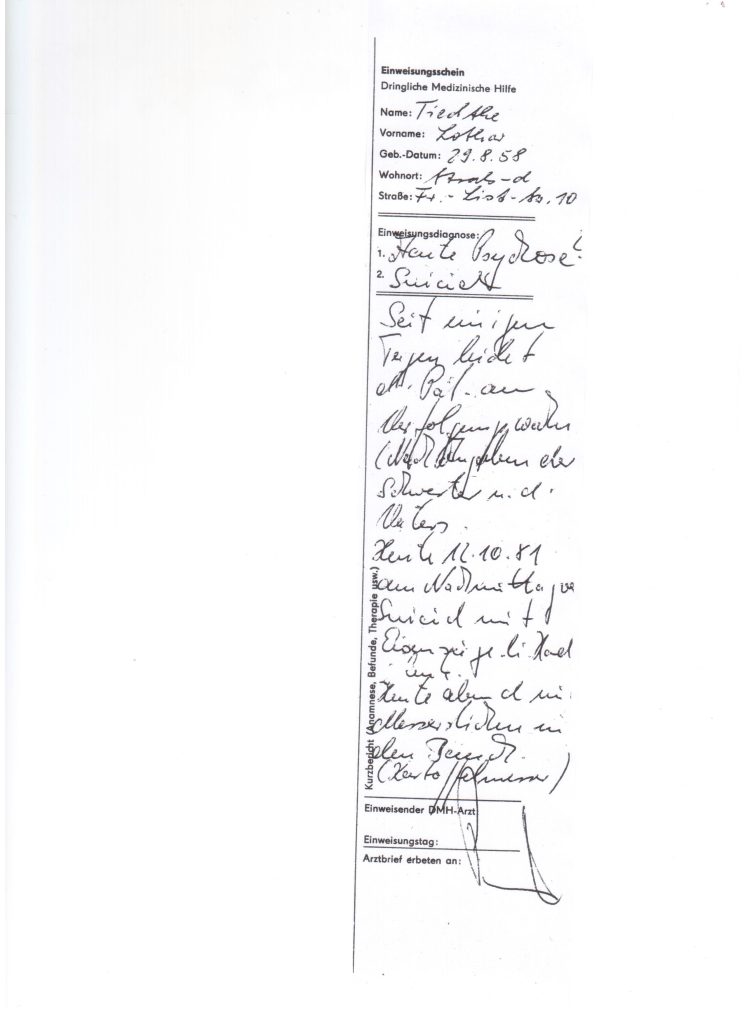 Einweisungsschein
Dringliche Medizinische Hilfe
Name: Tiedtke
Vorname: Lothar
Geb.-Datum: 29.8.58
Wohnort: Strals-d
Straße: Fr.-List-Str. 10
Einweisungsdiagnose:
1. Akute Psychose?
2. Suicid
Seit einigen
Tagen leidet
d. Pat. an
Verfolgungswahn
(Nach Angaben der
Schwester u. d.
Vaters.
Heute 12.10.81
am Nachmittag
Suicid mit
li. Hand
Heute abend mi
Messerstichen in
den Bauch.
(Kartoffelmesser)
Kurzbericht (Anamnese, Befunde, Therapie usw.)
Einweisender DMH-Arzt
Einweisungstag:
Arztbrief erbeten an: